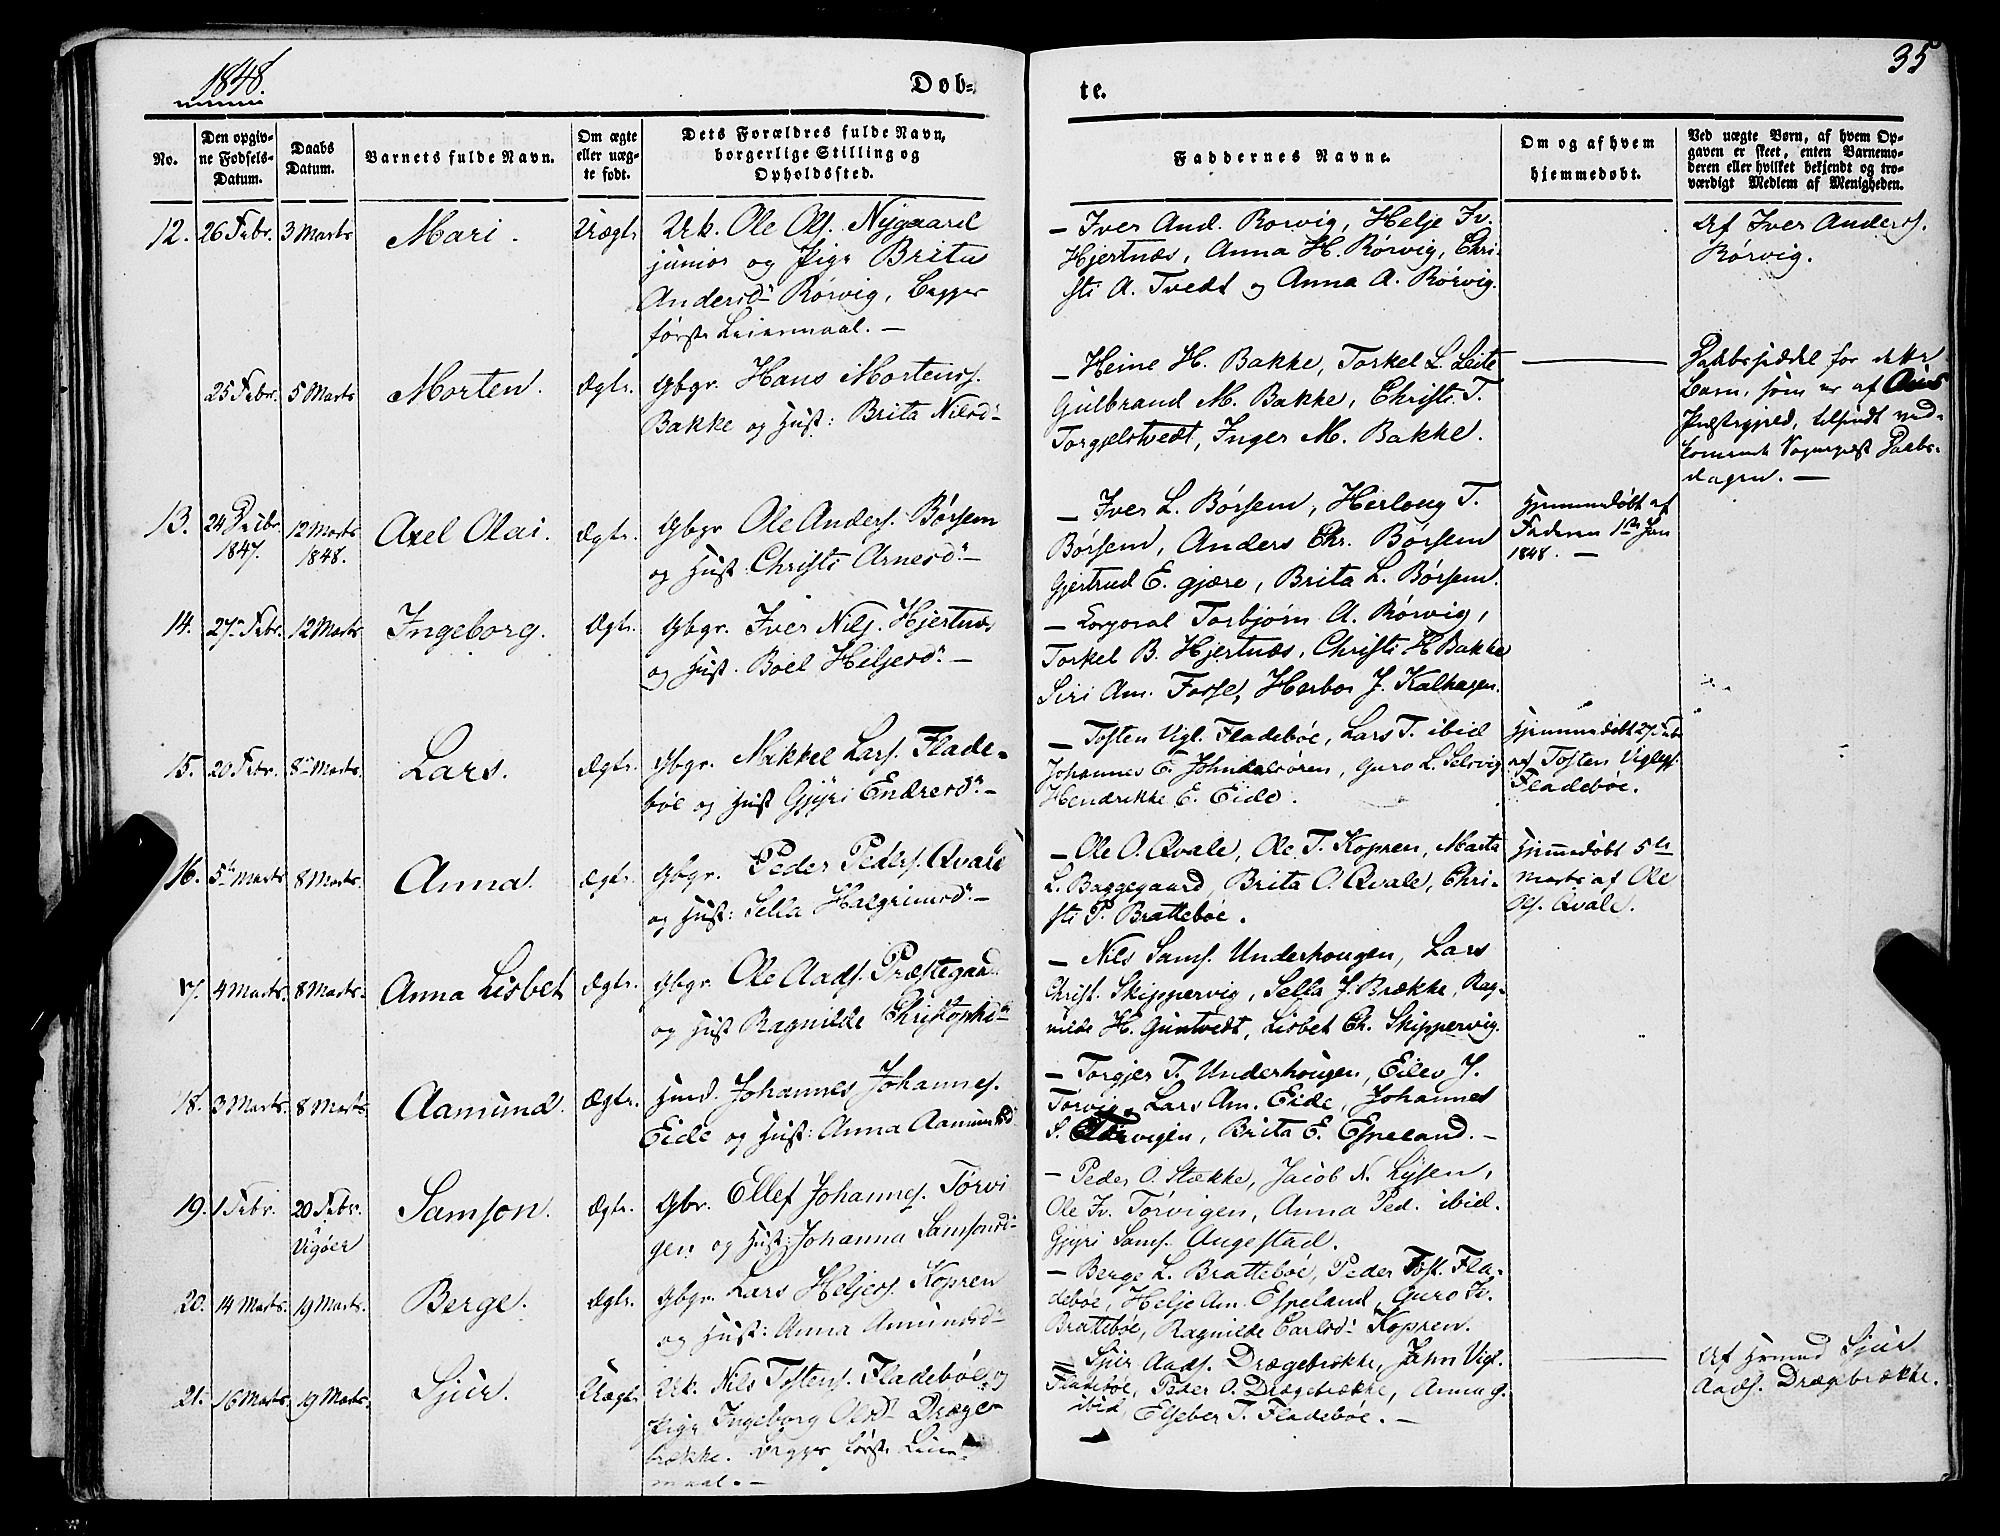 1848.
Døb-
te.
35
No.
Den opgiv-
ne Fødsels-
Datum.
Daabs
Datum.
Barnets fulde Navn.
Om ægte
eller uæg-
te født.
Dets Forældres fulde Navn,
borgerlige Stilling og
Opholdssted.
Faddernes Navne.
Om og af hvem
hjemmedøbt.
Ved uægte Børn, af hvem Op-
gaven er skeet, enten Barnemo-
deren eller hvilket bekjendt og tro-
værdigt Medlem af Menigheden.
12. 26 Febr. 3 Marts Mari. Uægte
Uk. Ole Ols. Nygaard
junior og Pige Brita
Andersdr Rørvig, Begges
første Leiermaal. —
— Iver And. Rørvig, Helje Iv.
Hjertnæs, Anna H. Rørvig, Chri-
sti A. Tvedt og Anna A. Rørvig.
Af Iver Anders.
Rørvig.
25 Febr. 5 Marts Morten. Ægte.
Gbgr. Hans Mortens.
Bakke og Hust: Brita Nilsdr
— Heine H. Bakke, Torkel L. Leite
Gulbrand M. Bakke, Christi T.
Torgjelstvedt, Inger M. Bakke.
Daabssædel for dette
Barn, som er af
Præstegjeld, tilsendt ved-
kommende Sognepræst Daabs-
dagen. —
13. 24 Decbr. 1847. 12 Marts 1848. Axel Olai. Ægte.
Gbgr Ole Anders. Børsem
og Hust. Christi Arnesdr —
— Iver L. Børsem, Herloug T.
Børsem, Anders Chr. Børsem
Gjertrud E. Gjære, Brita L. Børsem.
Hjemmedøbt af
Faderen 1ste Jan
1848. —
14. 27 Febr. 12 Marts Ingeborg. Ægte.
Gbgr. Iver Nils. Hjertnæs
og Hust. Boel Heljesdr —
— Corporal Torbjørn A. Rørvig,
Torkel B. Hjertnæs, Christi H. Bakke
Siri Am. Fosse, Herbor J. Kalhagen.
15. 20 Febr. 8 Marts. Lars. Ægte.
Gbgr. Mikkel Lars. Flade-
bøe og Hust Gjyri Endresdr —
— Tosten Vigl. Fladebøe, Lars T. ibid
Johannes E. Johndalsøren, Guro L. Selsvig
Hendrikke E. Eide.
Hjemmedøbt 27 Feb
af Tosten Vigleys.
Fladebøe.
16. 5te Marts 8 Marts. Anna. Ægte.
Gbgr. Peder Peders. Qvale
og Hust: Sella Halgrimsdr —
— Ole O. Qvale, Ole T. Kopren, Marta
L. Baggegaard, Brita O. Qvale, Chri-
sti P. Brattebøe.
Hjemmedøbt 5te
Marts af Ole
Ols. Qvale.
17. 4 Marts. 8 Marts. Anna Lisbet Ægte.
Gbgr. Ole Aads. Præstegaard
og Hust Ragnilde Christophdr
— Nils Sams. Underhougen, Lars
Christ. Skippervig, Sella J. Brække, Rag-
nilde H. Guntvedt, Lisbet Ch. Skippervig.
18. 3 Marts. 8 Marts. Aamund. Ægte.
Huusmd. Johannes Johannes.
Eide og Hust: Anna Aamundsdr
— Torgjer T. Underhougen, Eilev J.
Torvig, Lars Am. Eide, Johannes
S. Tørvigen, Brita E. Espeland. —
19. 1 Febr. 20 Febr. Vigøer Samson. Ægte.
Gbr. Ellef Johannes. Tørvi
gen og Hust: Johanna Samsondr
— Peder O. Stække, Jacob N. Lysen,
Ole Iv. Tørvigen, Anna Ped. ibid.
Gjyri Sams. Augestad.
20. 14 Marts. 19 Marts. Berge. Ægte.
Gbgr. Lars Heljes. Kopren
og Hust: Anna Amundsdr
— Berge L. Brattebøe, Peder Tost. Fla-
debøe, Helje Am. Espeland, Guro Iv.
Brattebøe, Ragnilde Carlsdr Kopren.
21. 16 Marts. 19 Marts. Sjur. Uægte
Uk. Nils Tostens. Fladebøe og
Pige Ingeborg Olsdr Dræge-
brække. Begges første Leier-
maal. —
= Sjur Aads. Drægebrække, John Vigl.
Fladebøe, Peder O. Drægebrække, Anna G.
ibid, Elseber T. Fladebøe. —
Af Huusmd Sjur
Aads. Drægebrække.